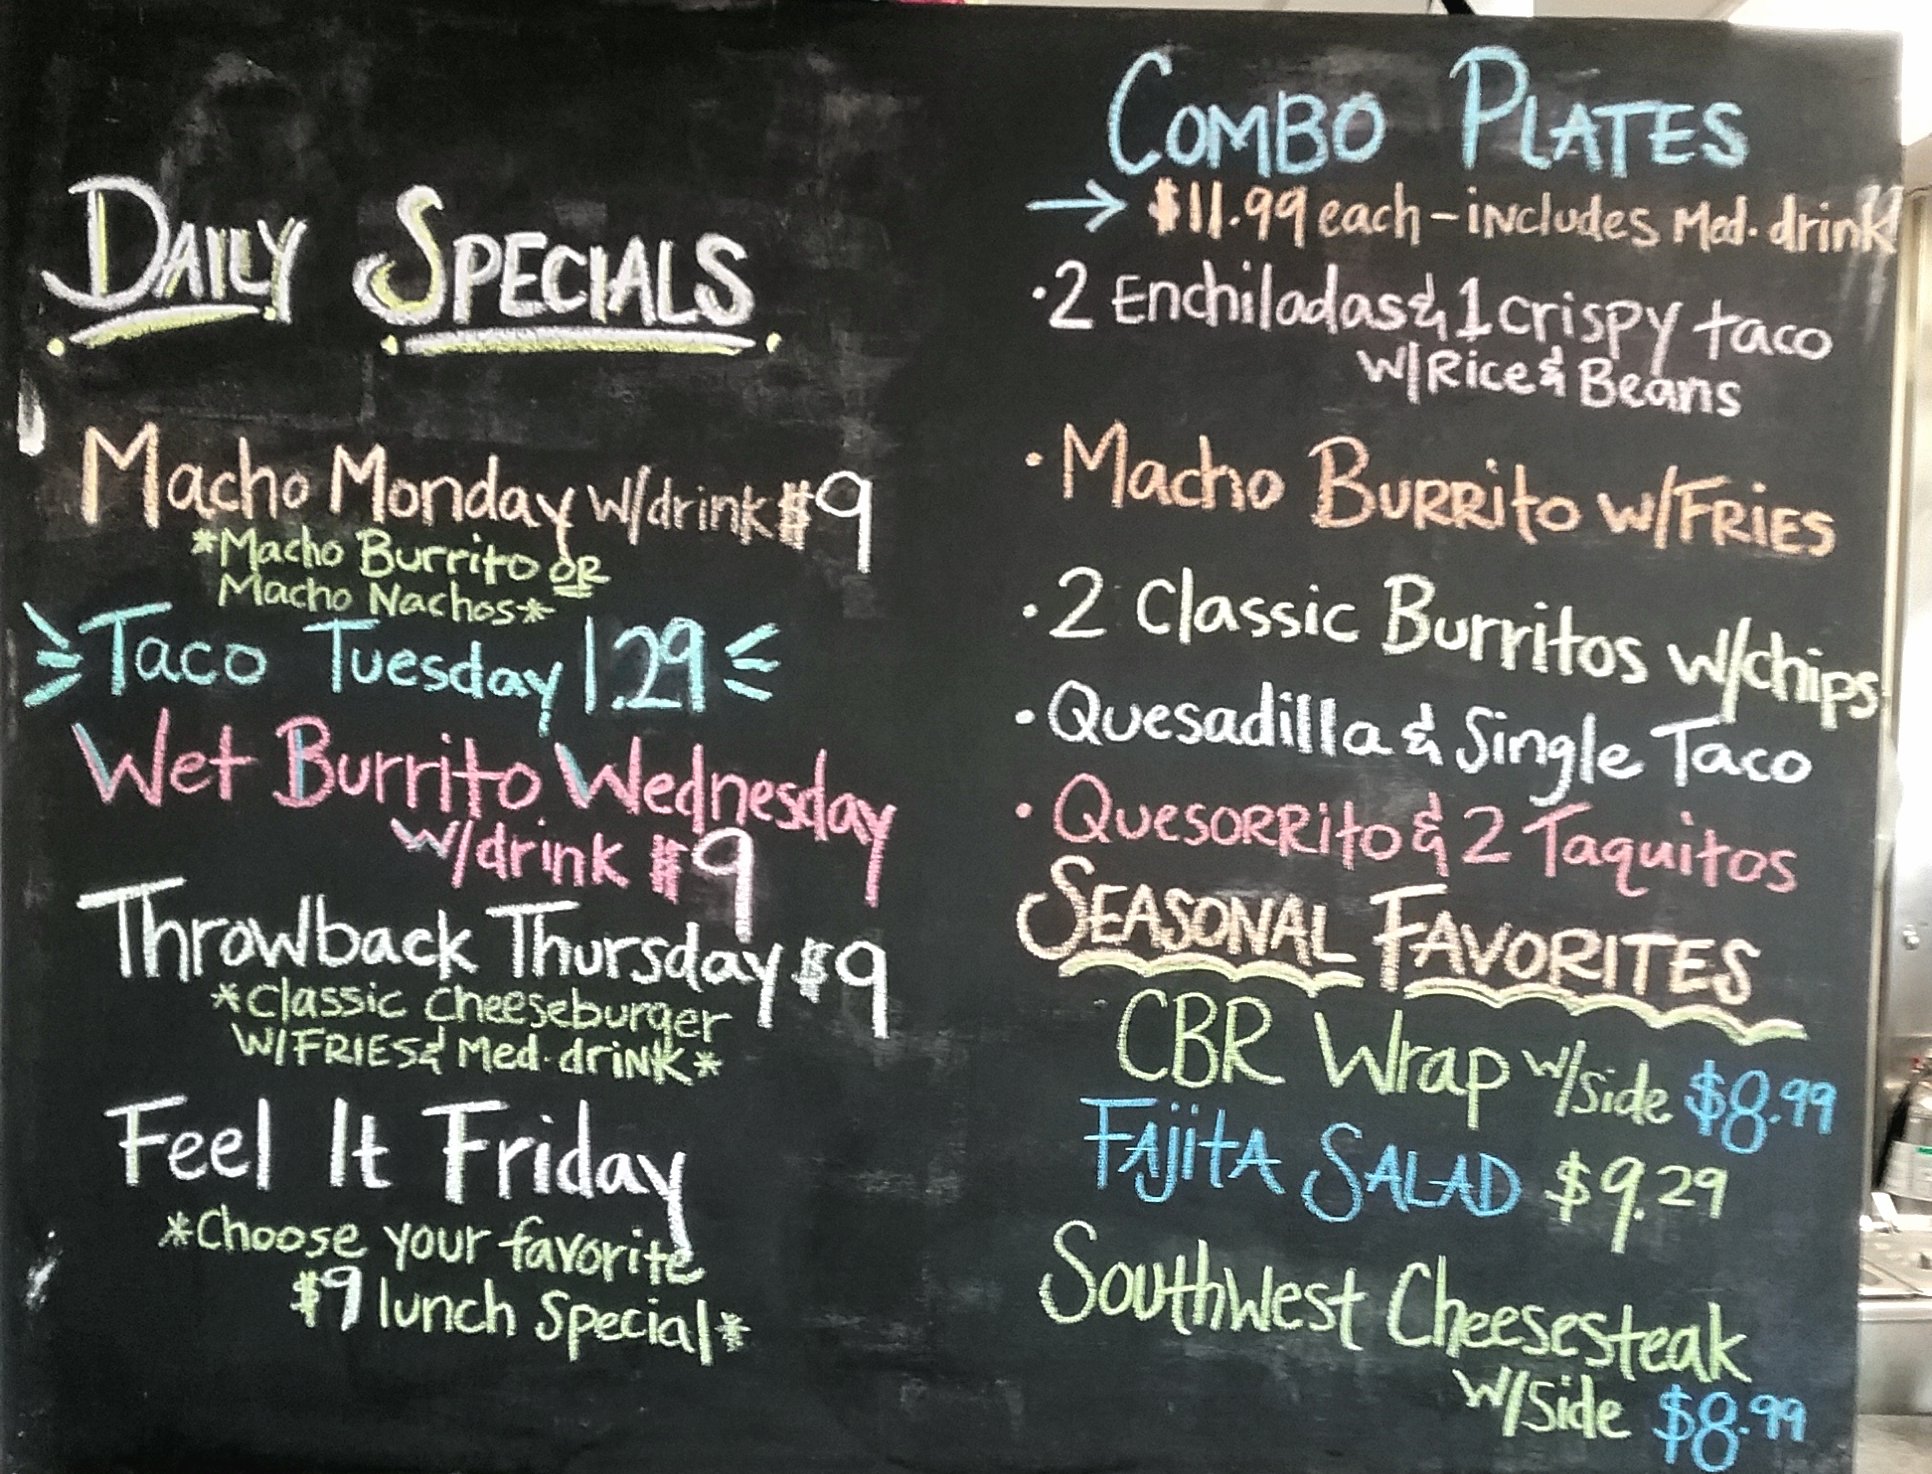 DAILY SPECIALS
Macho Monday w/drink $9
*Macho Burrito OR
Macho Nachos*
Taco Tuesday 1.29
Wet Burrito Wednesday
w/drink $9
Throwback Thursday $9
*Classic Cheeseburger
W/FRIES & Med. drink*
Feel It Friday
*Choose your favorite
$9 lunch special*
COMBO PLATES
→ $11.99 each - includes Med. drink
·2 Enchiladas & 1 crispy taco
w/Rice & Beans
·Macho Burrito w/FRIES
·2 Classic Burritos w/chips
·Quesadilla & Single Taco
·Quesorrito & 2 Taquitos
SEASONAL FAVORITES
CBR Wrap w/side $8.99
FAJITA SALAD $9.29
Southwest Cheesesteak
w/side $8.99